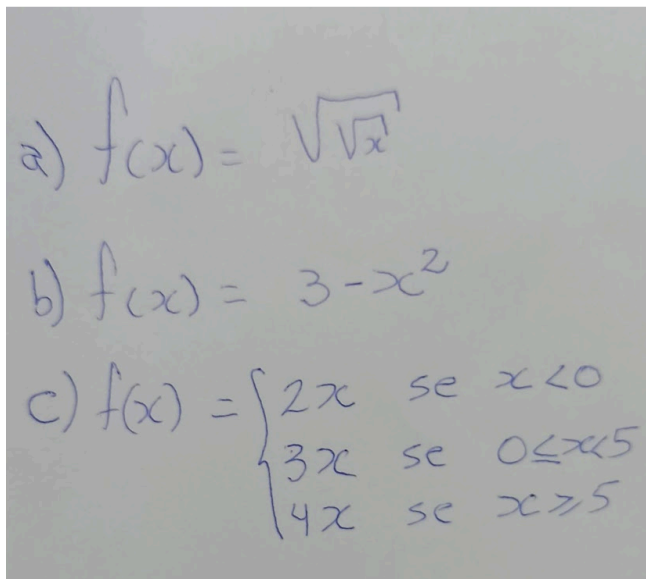 a) f(x) = √√x
b) f(x) = 3 - x²
c) f(x) = { 2x se x < 0
3x se 0 ≤ x < 5
4x se x ≥ 5